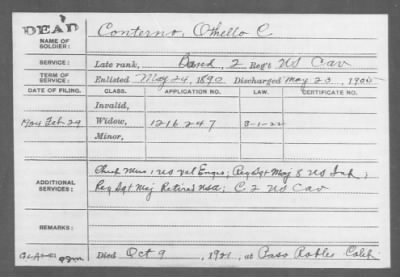 DEAD
NAME OF SOLDIER: Conterno, Othello C
SERVICE: Late rank, Band, 2 Reg't US Cav
TERM OF SERVICE: Enlisted May 24, 1890 Discharged May 23, 1905
DATE OF FILING. CLASS. APPLICATION NO. LAW. CERTIFICATE NO.
Invalid,
Feb 29 Widow, 1216247 5-1-20
Minor,
ADDITIONAL SERVICES: Chief Mus; US Vol Engrs; Reg Sgt Maj 8 US Inf;
Reg Sgt Maj Retired USA; C. 2 US Cav
REMARKS:
Died Oct 9, 1921, at Paso Robles Calif